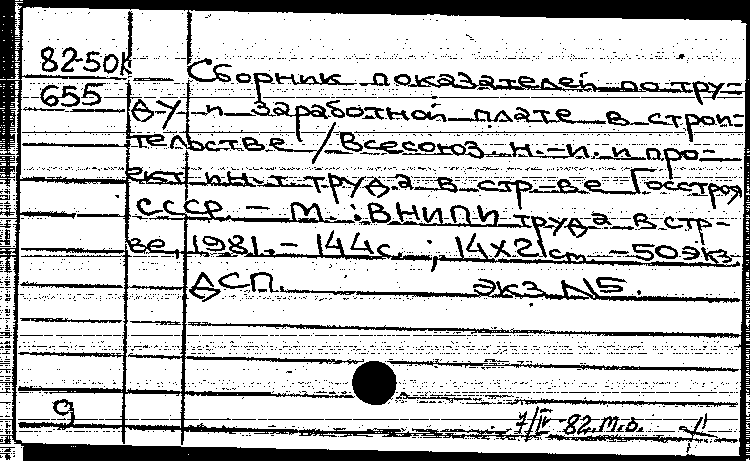 82-50К Сборник показателей по тру-
655 ду и заработной плате в строи-
тельстве / Всесоюз. н.-и. и про-
ект. ин-т труда в стр-ве Госстроя
СССР. – М.: ВНИПИ труда в стр-
ве, 1981. – 144с. ; 14х21см – 50экз.
ДСП. экз. N5.
9
7/IV 82. т.о.